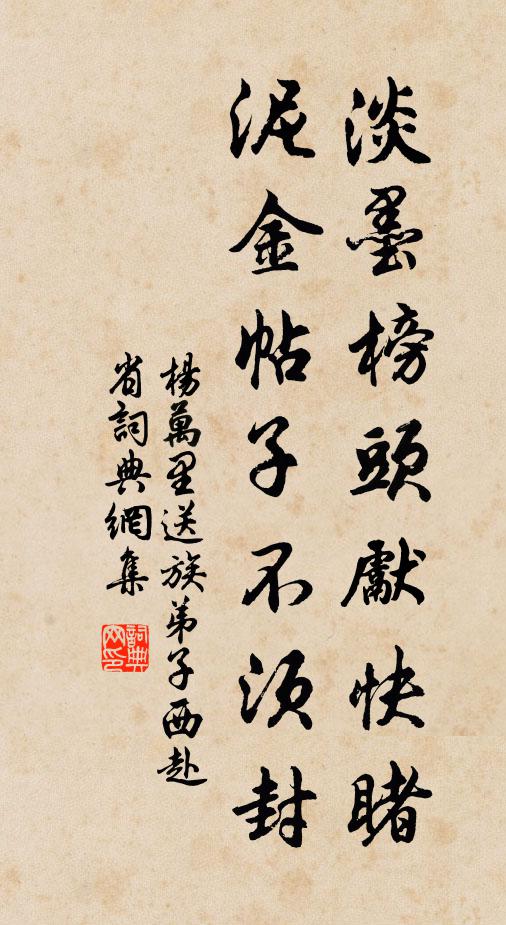 淡墨榜頭獻快睹
泥金帖子不須封
楊萬里送族弟子西赴
省詞典網集
詞典网印